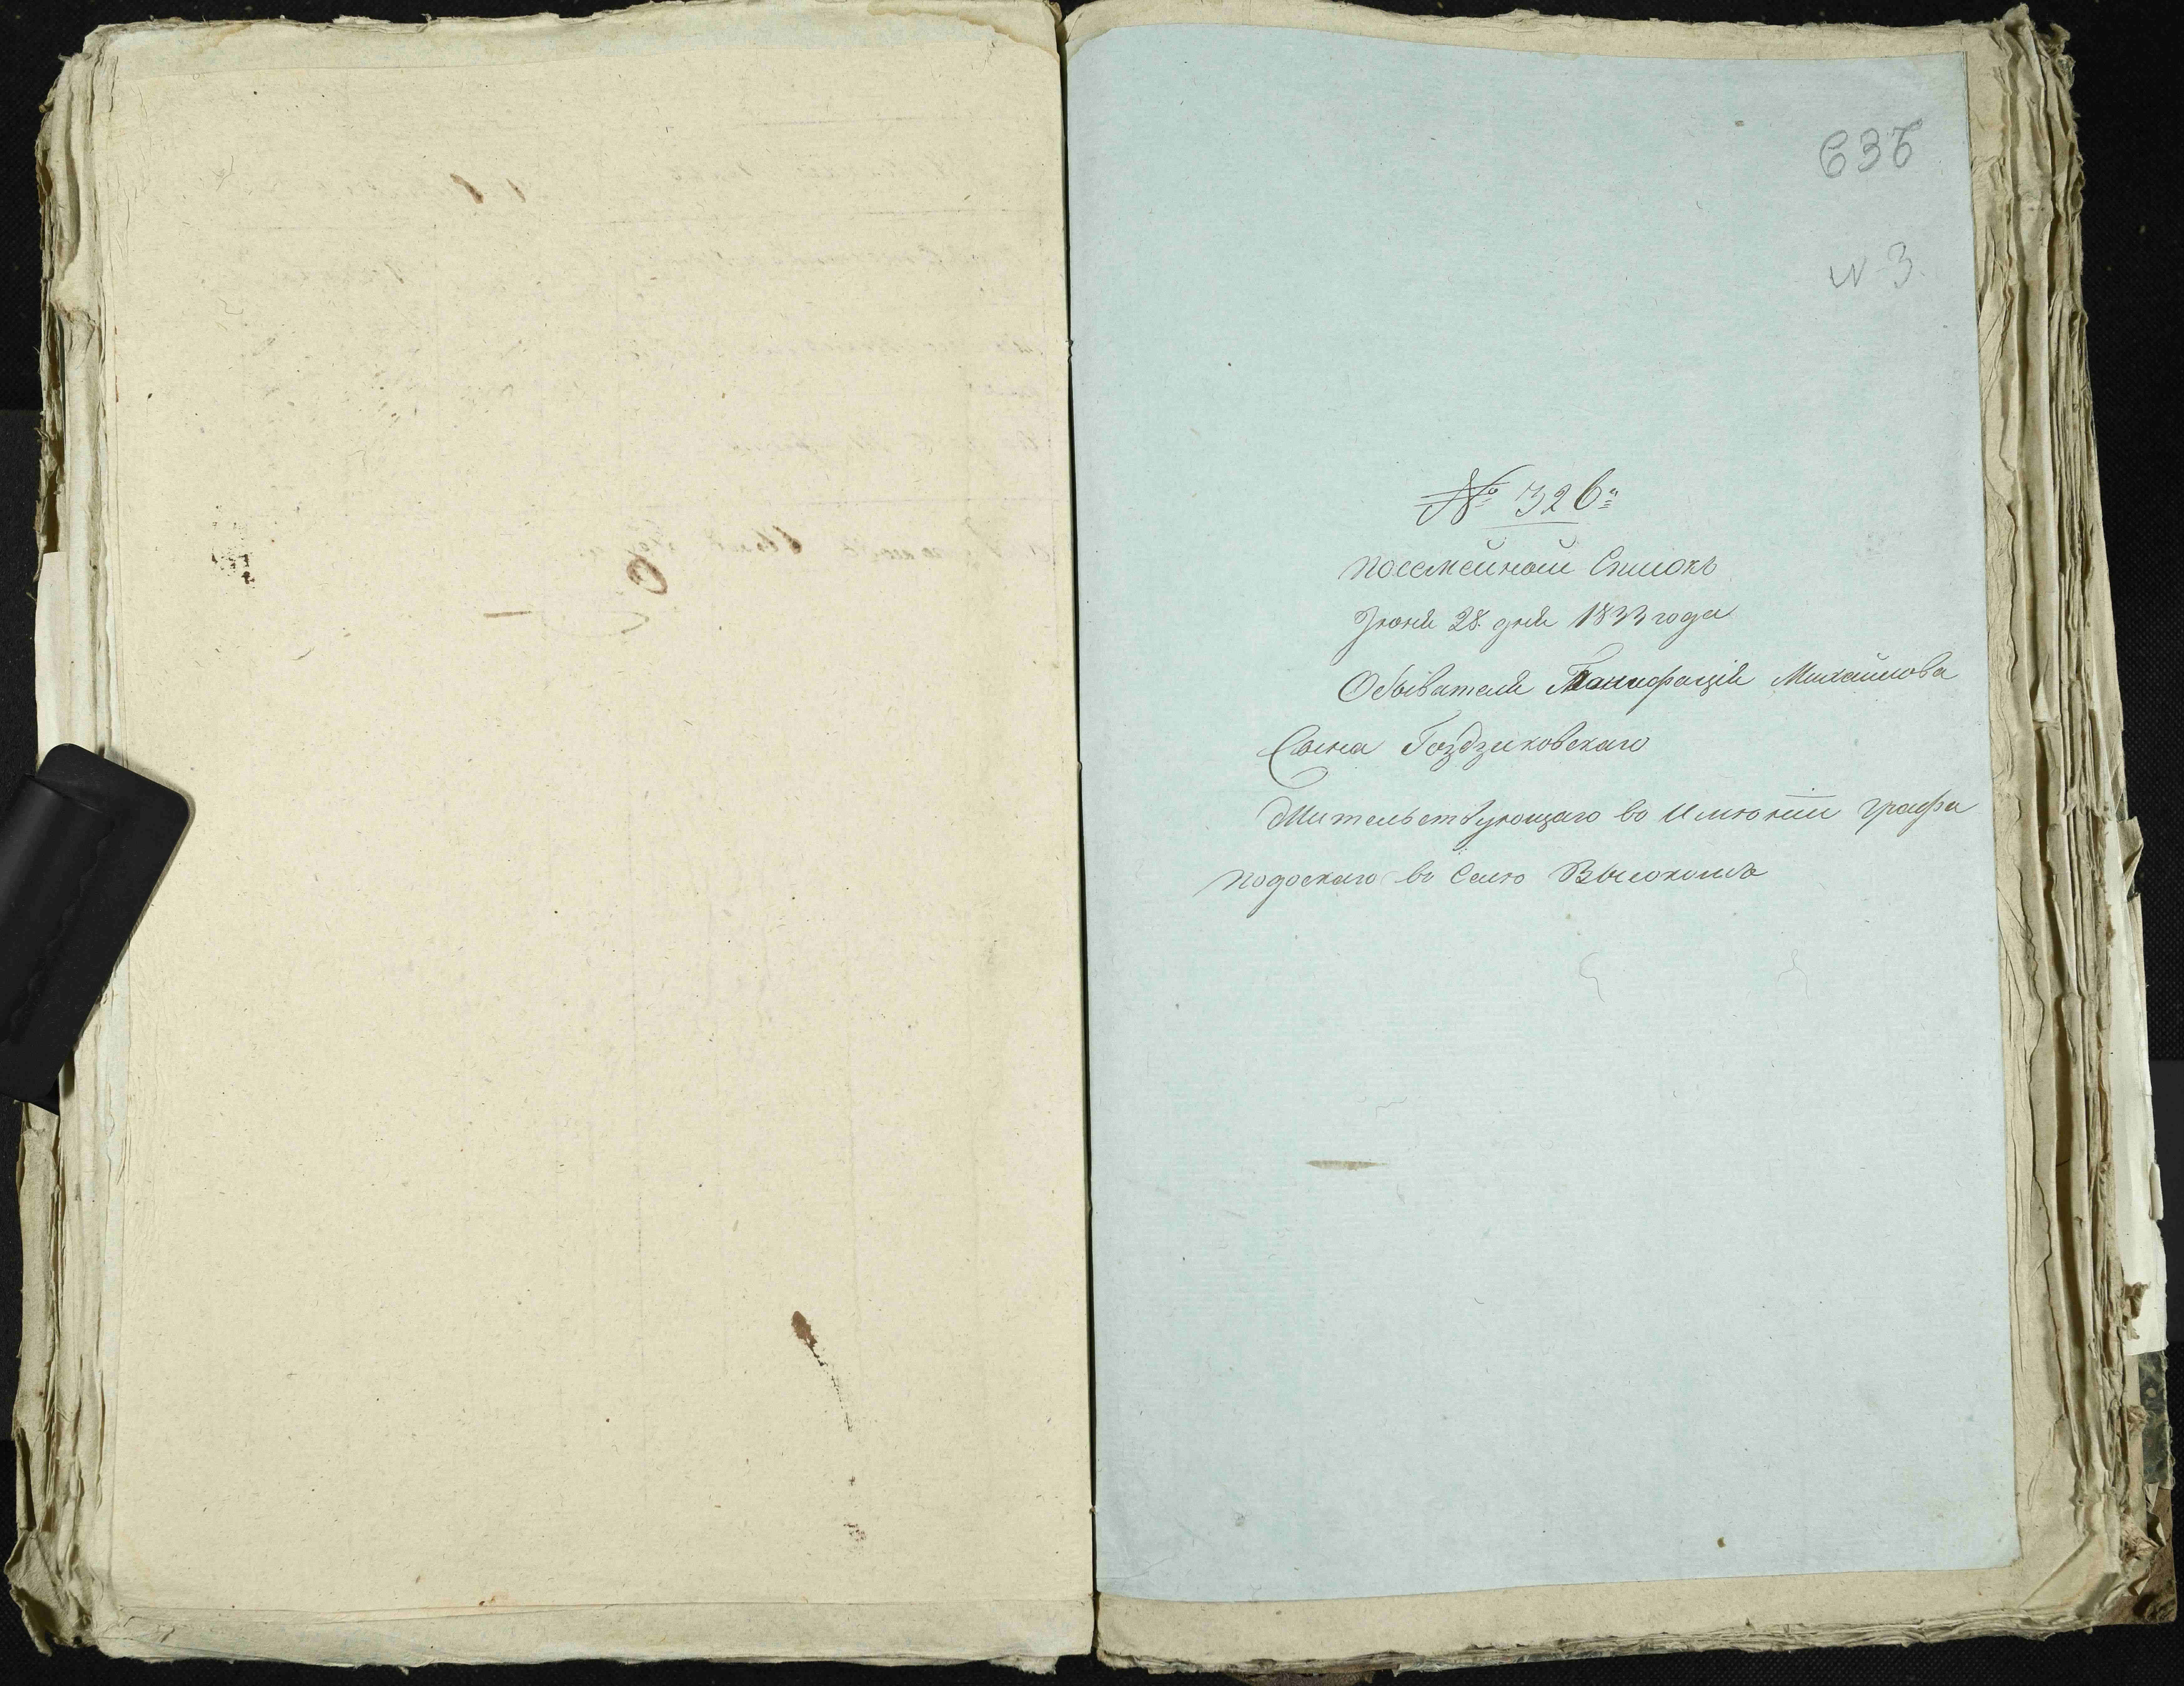 636
N 3.
№ 326й
посемейный Списокъ
Іюня 28 дня 1833 года
Обывателя Банифація Михайлова
Сына Гоздзиковскаго
Жительствующаго во Имѣніи графа
подоскаго во Селѣ Высокомъ